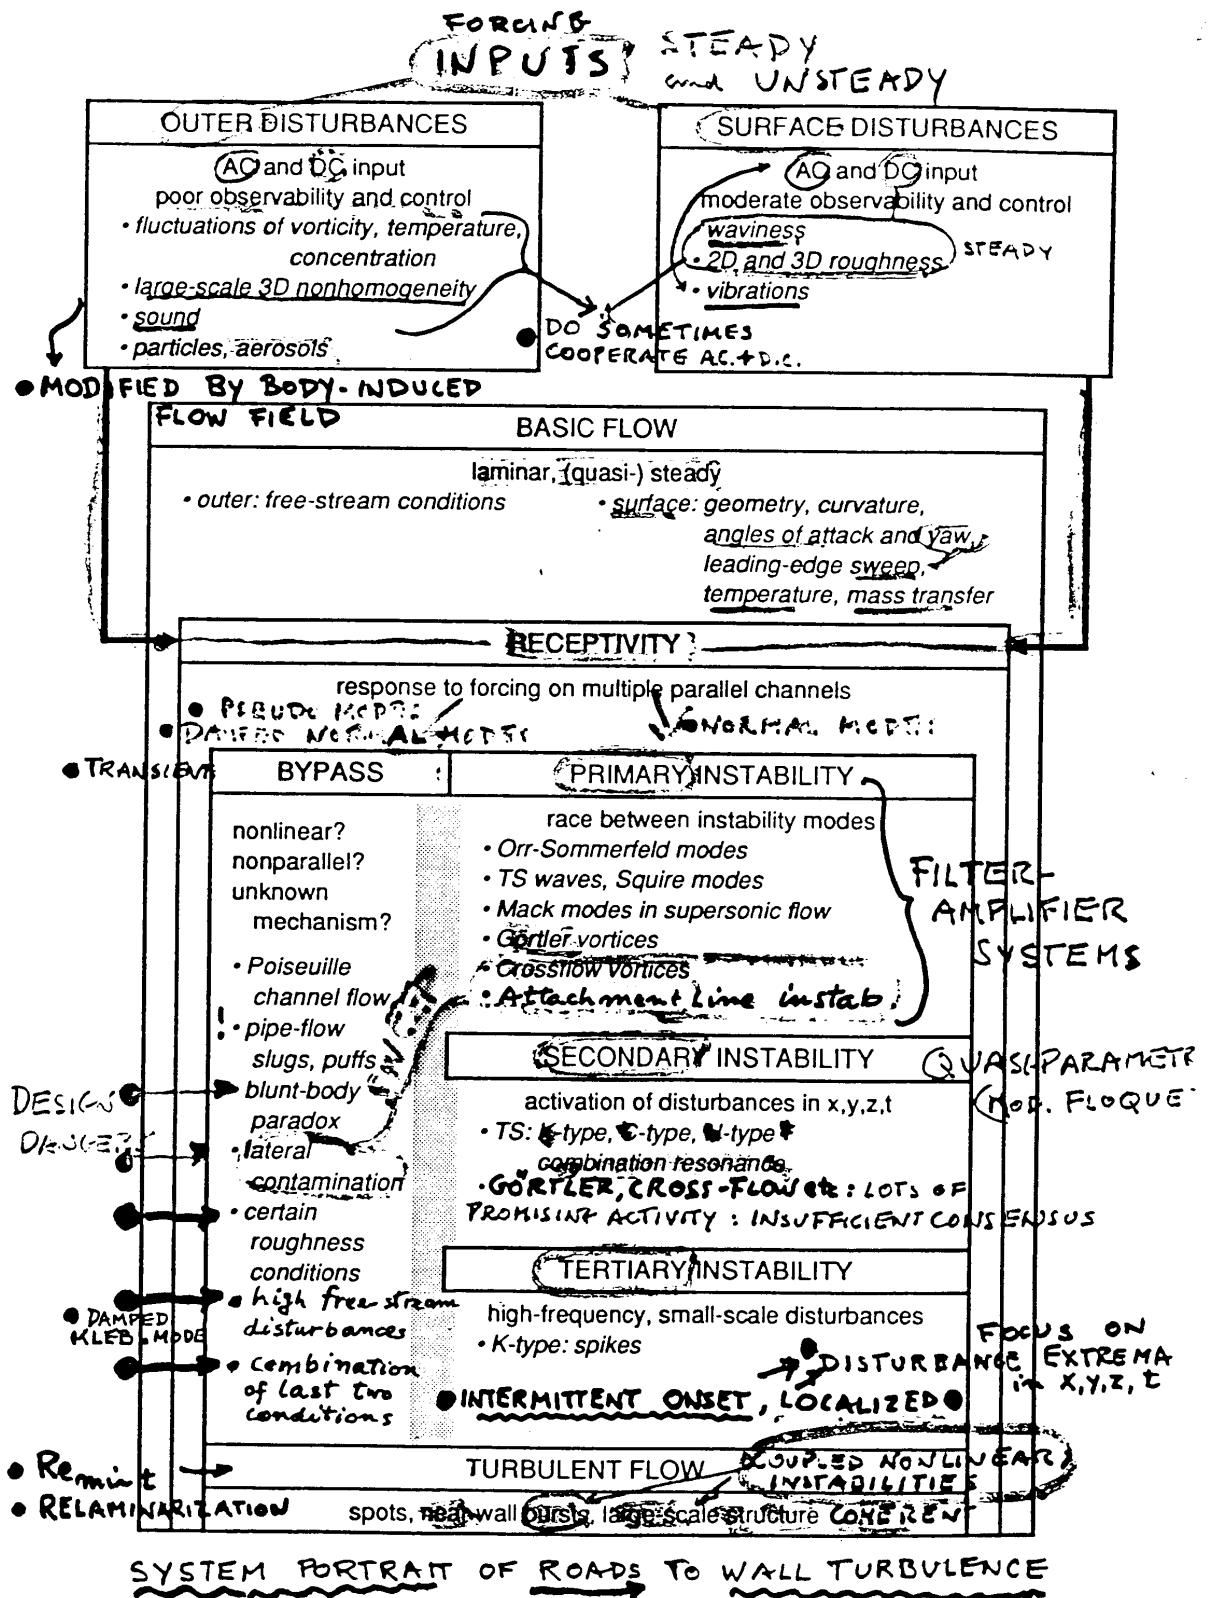 FORCING
INPUTS; STEADY
and UNSTEADY
OUTER DISTURBANCES
AC and DC input
poor observability and control
• fluctuations of vorticity, temperature,
concentration
• large-scale 3D nonhomogeneity
• sound
• particles, aerosols
SURFACE DISTURBANCES
AC and DC input
moderate observability and control
• waviness
• 2D and 3D roughness
STEADY
• vibrations
• DO SOMETIMES
COOPERATE A.C. + D.C.
• MODIFIED BY BODY-INDUCED
FLOW FIELD
BASIC FLOW
laminar, (quasi-) steady
• outer: free-stream conditions
• surface: geometry, curvature,
angles of attack and yaw,
leading-edge sweep,
temperature, mass transfer
RECEPTIVITY
response to forcing on multiple parallel channels
• NORMAL MODES
• TRANSIENT
BYPASS
nonlinear?
nonparallel?
unknown
mechanism?
• Poiseuille
channel flow
! • pipe-flow
slugs, puffs
• blunt-body
paradox
• lateral
contamination
• certain
roughness
conditions
• high free stream
disturbances
• combination
of last two
conditions
DESIGN
DANGERS
• DAMPED
KLEB. MODE
PRIMARY INSTABILITY
race between instability modes
• Orr-Sommerfeld modes
• TS waves, Squire modes
• Mack modes in supersonic flow
• Görtler vortices
• Crossflow vortices
• Attachment Line instab.
FILTER-
AMPLIFIER
SYSTEMS
SECONDARY INSTABILITY
activation of disturbances in x,y,z,t
• TS: K-type, C-type, H-type
combination resonance
• GÖRTLER, CROSS-FLOW etc: LOTS OF
PROMISING ACTIVITY: INSUFFICIENT CONSENSUS
TERTIARY INSTABILITY
high-frequency, small-scale disturbances
• K-type: spikes
FOCUS ON
DISTURBANCE EXTREMA
in x,y,z,t
• INTERMITTENT ONSET, LOCALIZED •
• Re min t
• RELAMINARIZATION
TURBULENT FLOW
COUPLED NONLINEAR
INSTABILITIES
spots, near-wall bursts, large-scale structure COHERENT
SYSTEM PORTRAIT OF ROADS TO WALL TURBULENCE